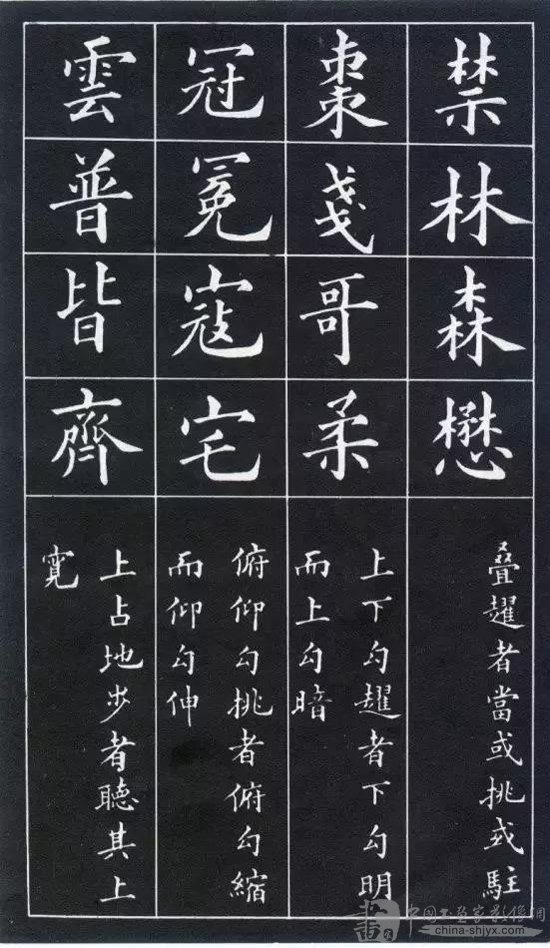 禁林森懋
叠趯者當或挑或駐
棗戔哥柔
上下勾趯者下勾明
而上勾暗
冠冕寇宅
俯仰勾挑者俯勾縮
而仰勾伸
雲普皆齊
上占地步者聽其上
寬
china-shjyx.com